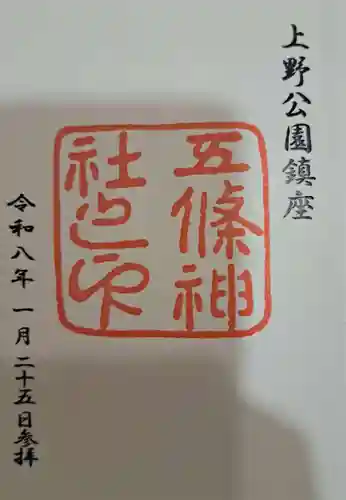 上野公園鎮座
五條神
社之印
令和八年 一月 二十五日参拝